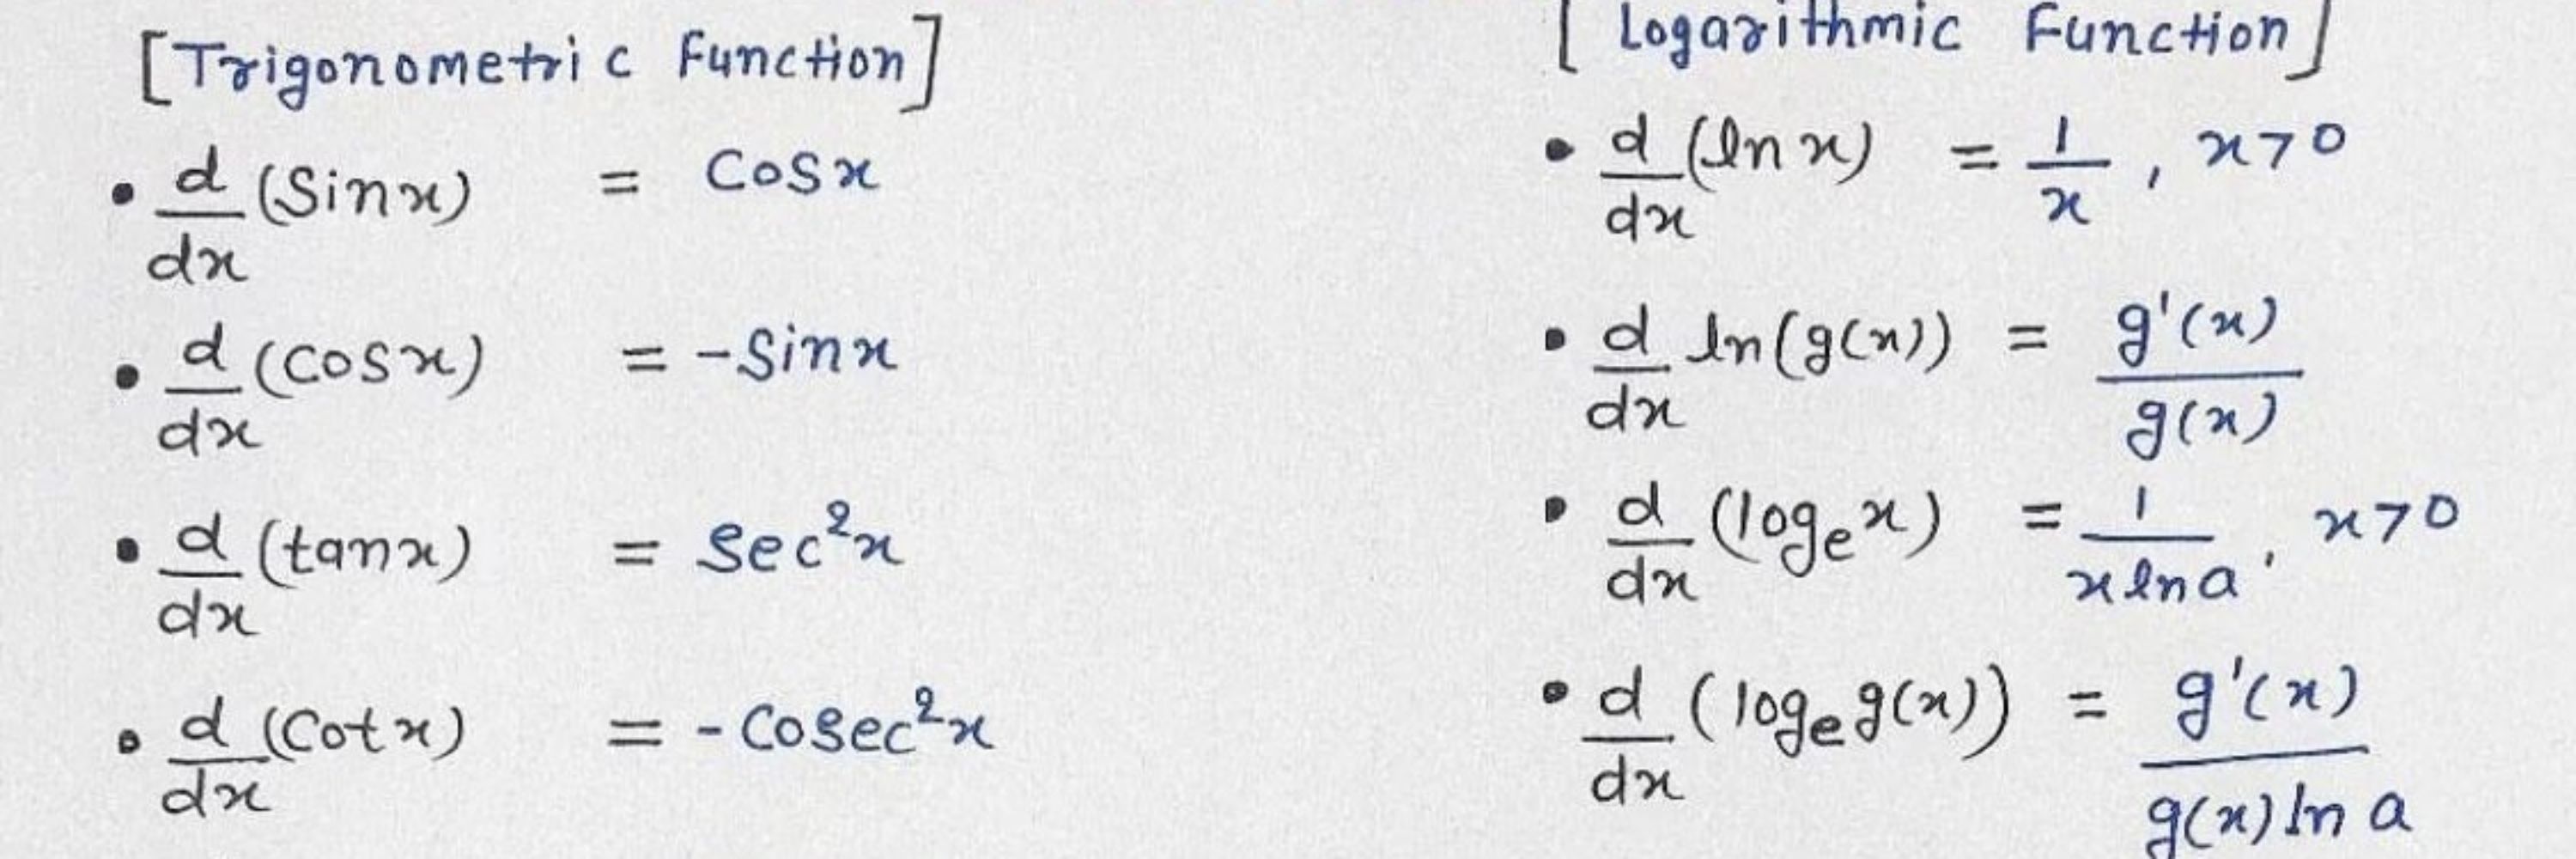 [Trigonometric Function]
• d/dx (Sinx) = Cosx
• d/dx (Cosx) = -Sinx
• d/dx (tanx) = Sec²x
• d/dx (Cotx) = -Cosec²x
[Logarithmic Function]
• d/dx (ln x) = 1/x , x>0
• d/dx ln(g(x)) = g'(x)/g(x)
• d/dx (logₑx) = 1/(x ln a) , x>0
• d/dx (logₑg(x)) = g'(x)/(g(x) ln a)